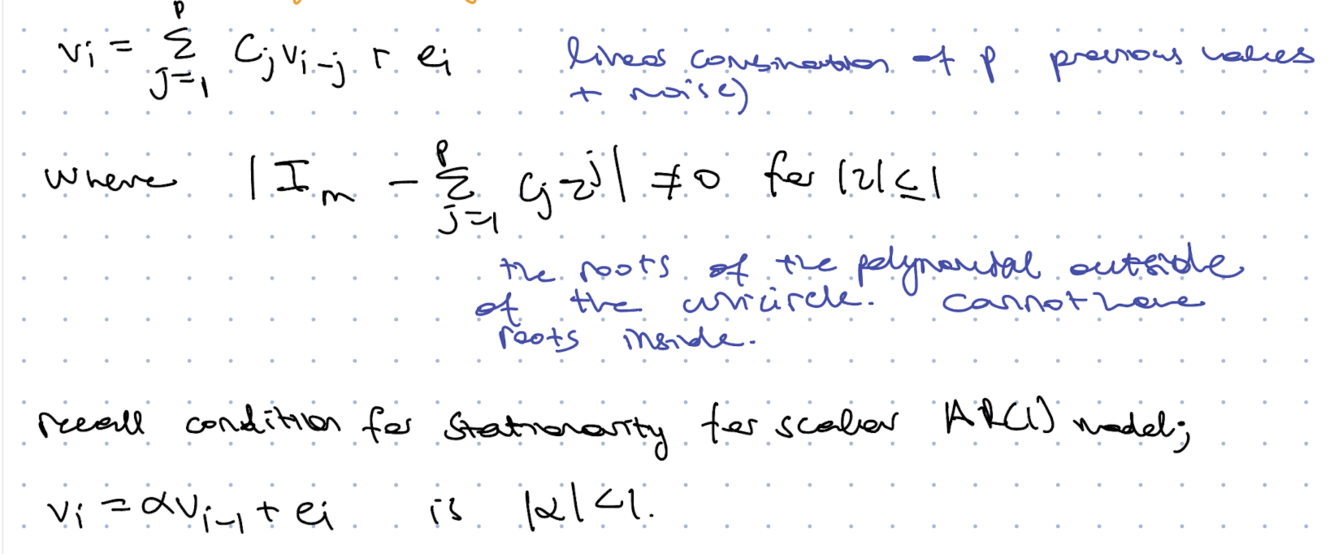 v_i = Σ_{j=1}^{p} C_j v_{i-j} + e_i linear combination of p previous values
+ noise)
where |I_m - Σ_{j=1}^{p} C_j z^j| ≠ 0 for |z| ≤ 1
the roots of the polynomial outside
of the unicircle. cannot have
roots inside.
recall condition for stationarity for scalar AR(1) model;
v_i = αv_{i-1} + e_i is |α| < 1.